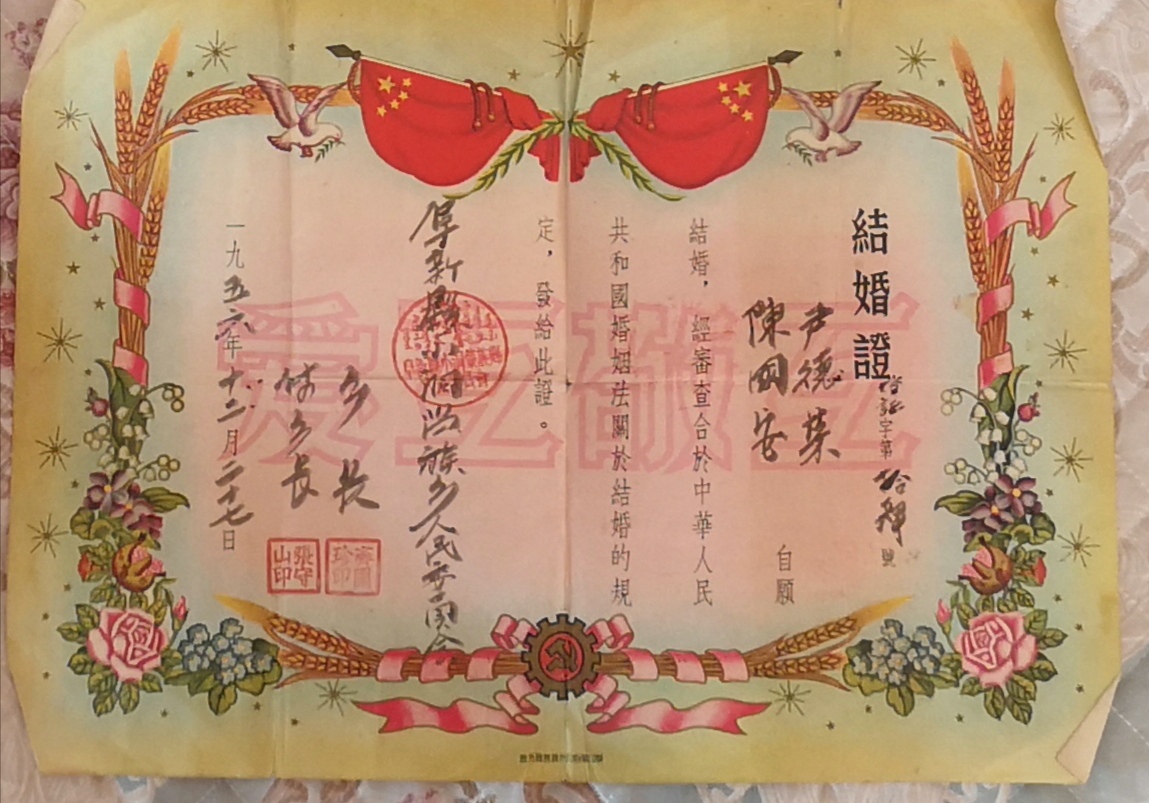 結婚證
證字第 號
尹德榮
陳國安
自願
結婚，經審查合於中華人民
共和國婚姻法關於結婚的規
定，發給此證。
阜新縣 滿族鄉人民委員會
鄉長
付鄉長
張守山印
一九五六年十二月二十七日
互敬互愛